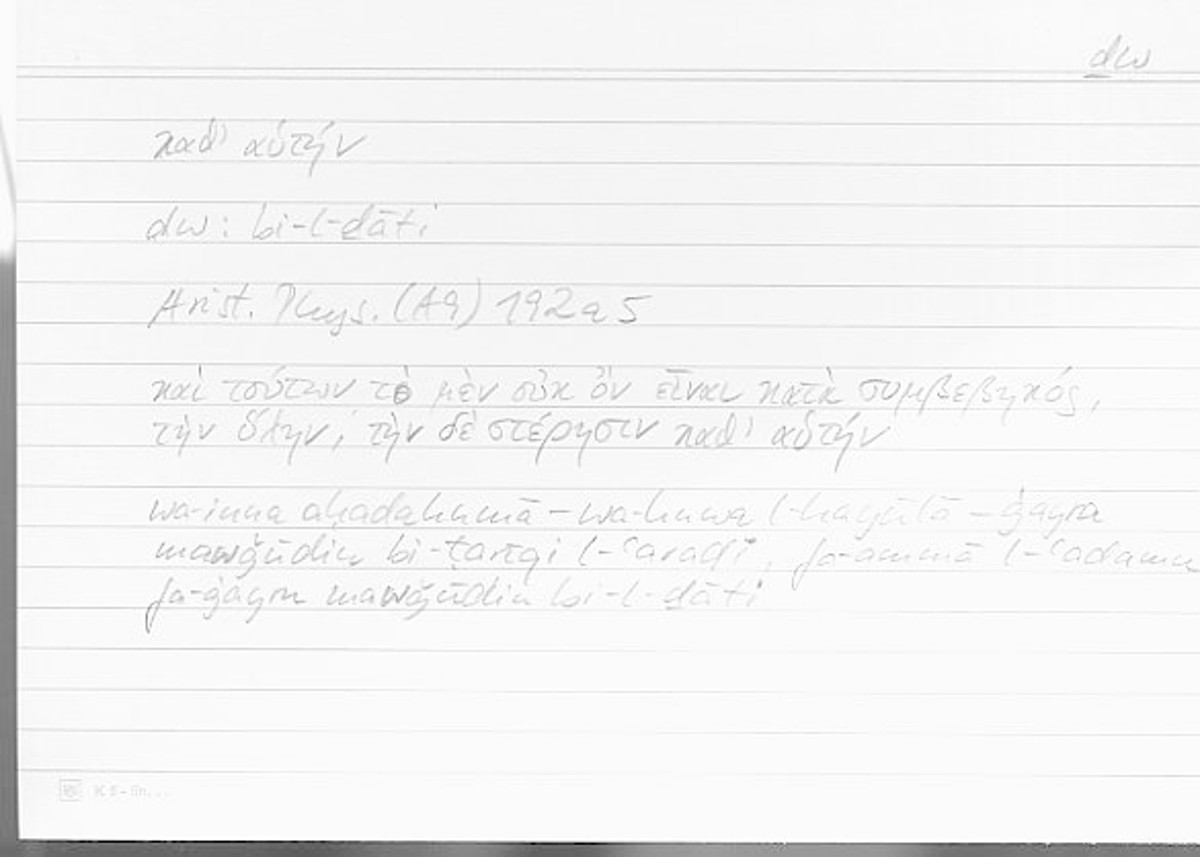 ḏw
καθ' αὑτήν
ḏw: bi-l-ḏāti
Arist. Phys. (A9) 192a5
καὶ τούτων τὸ μὲν οὐκ ὂν εἶναι κατὰ συμβεβηκός,
τὴν ὕλην, τὴν δὲ στέρησιν καθ' αὑτήν
wa-inna aḥadahumā – wa-huwa l-hayūlā – ġayru
mawǧūdin bi-ṭarīqi l-ʿaraḍi, fa-ammā l-ʿadamu
fa-ġayru mawǧūdin bi-l-ḏāti